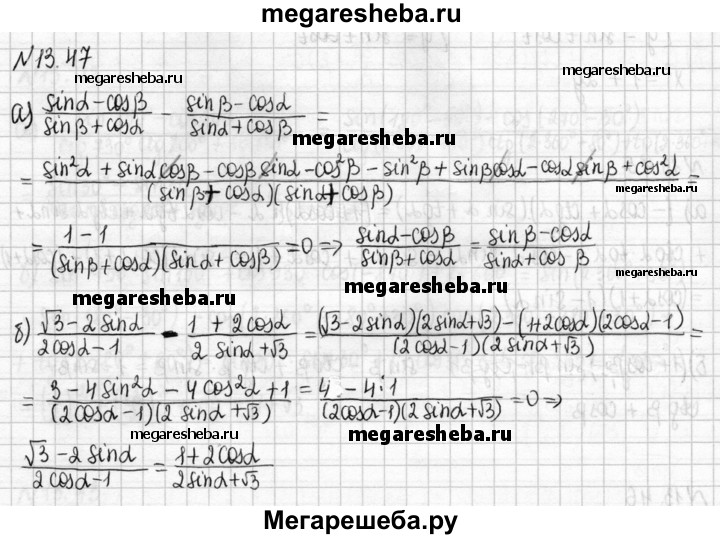 megaresheba.ru
N13.47
megaresheba.ru
megaresheba.ru
а) (sinα-cosβ)/(sinβ+cosα) - (sinβ-cosα)/(sinα+cosβ) =
megaresheba.ru
= (sin²α + sinα cosβ - cosβ sinα - cos²β - sin²β + sinβ cosα - cosα sinβ + cos²α)/((sinβ + cosα)(sinα + cosβ)) =
megaresheba.ru
= (1-1)/((sinβ+cosα)(sinα+cosβ)) = 0 => (sinα-cosβ)/(sinβ+cosα) = (sinβ-cosα)/(sinα+cosβ)
megaresheba.ru
megaresheba.ru
б) (√3-2sinα)/(2cosα-1) - (1+2cosα)/(2sinα+√3) = ((√3-2sinα)(2sinα+√3)-(1+2cosα)(2cosα-1))/((2cosα-1)(2sinα+√3)) =
megaresheba.ru
= (3-4sin²α-4cos²α+1)/((2cosα-1)(2sinα+√3)) = (4-4·1)/((2cosα-1)(2sinα+√3)) = 0 =>
megaresheba.ru
megaresheba.ru
(√3-2sinα)/(2cosα-1) = (1+2cosα)/(2sinα+√3)
megaresheba.ru
Мегарешеба.ру